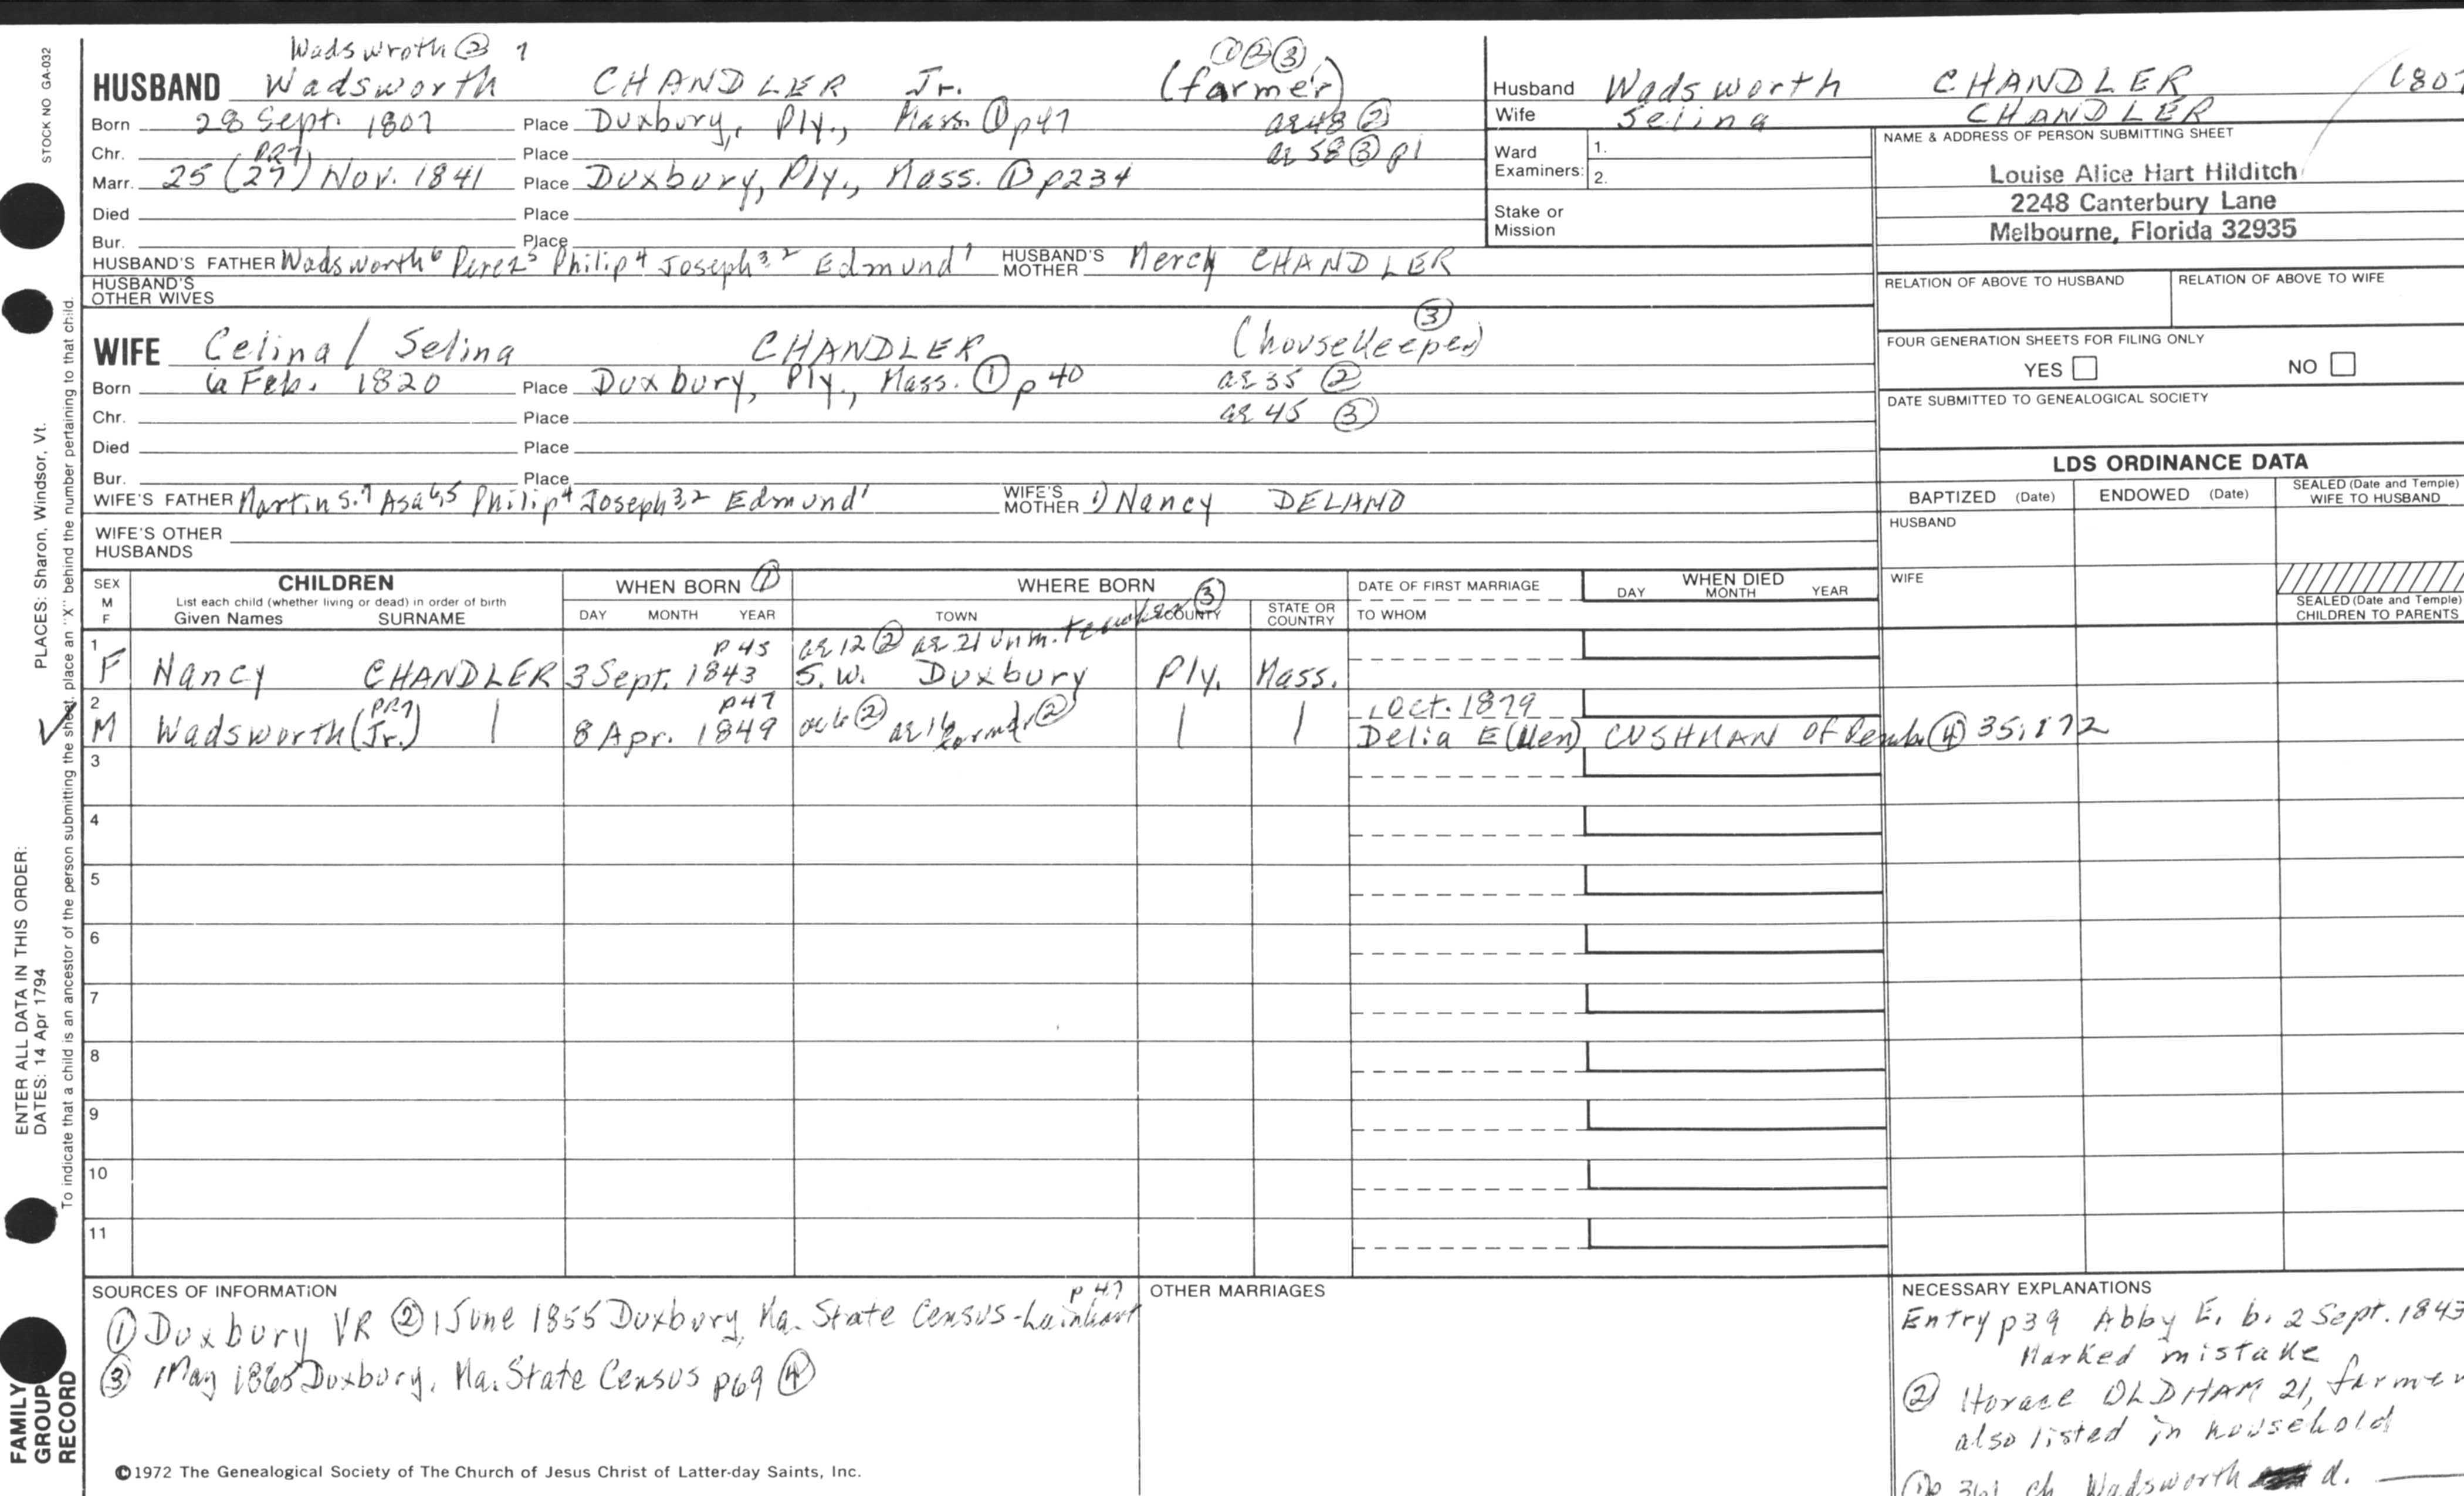 STOCK NO GA-032
PLACES: Sharon, Windsor, Vt.
ENTER ALL DATA IN THIS ORDER:
DATES: 14 Apr 1794
To indicate that a child is an ancestor of the person submitting the sheet, place an "X" behind the number pertaining to that child.
FAMILY
GROUP
RECORD
Wadswroth ② 7 ① ② ③
HUSBAND Wadsworth CHANDLER Jr. (farmer)
Born 28 Sept. 1807 Place Duxbury, Ply., Mass. ① p47 ae 48 ②
Chr. PR7 Place ae 58 ③ p1
Marr. 25 (27) Nov. 1841 Place Duxbury, Ply., Mass. ① p234
Died Place
Bur. Place
HUSBAND'S FATHER Wadsworth⁶ Perez⁵ Philip⁴ Joseph³,² Edmund¹ HUSBAND'S MOTHER Mercy CHANDLER
HUSBAND'S
OTHER WIVES
③
WIFE Celina / Selina CHANDLER (housekeeper)
Born 6 Feb. 1820 Place Duxbury, Ply., Mass. ① p40 ae 35 ②
Chr. Place ae 45 ③
Died Place
Bur. Place
WIFE'S FATHER Martin S.⁷ Asa⁶,⁵ Philip⁴ Joseph³,² Edmund¹ WIFE'S MOTHER 1) Nancy DELANO
WIFE'S OTHER
HUSBANDS
Husband Wadsworth CHANDLER 1807
Wife Selina CHANDLER
Ward
Examiners: 1.
2.
Stake or
Mission
NAME & ADDRESS OF PERSON SUBMITTING SHEET
Louise Alice Hart Hilditch
2248 Canterbury Lane
Melbourne, Florida 32935
RELATION OF ABOVE TO HUSBAND RELATION OF ABOVE TO WIFE
FOUR GENERATION SHEETS FOR FILING ONLY
YES NO
DATE SUBMITTED TO GENEALOGICAL SOCIETY
LDS ORDINANCE DATA
BAPTIZED (Date) ENDOWED (Date) SEALED (Date and Temple) WIFE TO HUSBAND
HUSBAND
WIFE
SEALED (Date and Temple)
CHILDREN TO PARENTS
SEX
M
F
CHILDREN
List each child (whether living or dead) in order of birth
Given Names SURNAME
WHEN BORN ①
DAY MONTH YEAR
WHERE BORN ③
TOWN COUNTY STATE OR COUNTRY
DATE OF FIRST MARRIAGE
TO WHOM
WHEN DIED
DAY MONTH YEAR
1 p45 ae 12 ② ae 21 unm.
F Nancy CHANDLER 3 Sept. 1843 S.W. Duxbury Ply. Mass.
2 PR7 p47 ae 6 ② ae 16 farmer ② Oct. 1879
M Wadsworth (Jr.) 8 Apr. 1849 Delia E(llen) CUSHMAN of Pemb. ④ 35:172
3
4
5
6
7
8
9
10
11
SOURCES OF INFORMATION
p 47
① Duxbury VR ② 1 June 1855 Duxbury, Ma. State Census -Lainhart
③ 1 May 1865 Duxbury, Ma. State Census p69 ④
OTHER MARRIAGES
NECESSARY EXPLANATIONS
Entry p39 Abby E. b. 2 Sept. 1843
Marked mistake
② Horace OLDHAM 21, farmer
also listed in household
① p 361 ch Wadsworth d.
©1972 The Genealogical Society of The Church of Jesus Christ of Latter-day Saints, Inc.